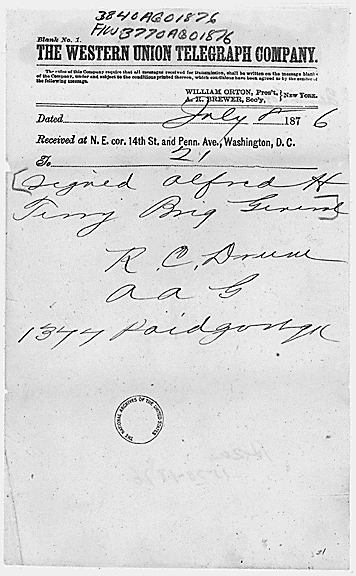 3840AGO1876
F/W 3770AGO1876
Blank No. 1.
THE WESTERN UNION TELEGRAPH COMPANY.
The rules of this Company require that all messages received for transmission, shall be written on the message blanks of the Company, under and subject to the conditions printed thereon, which conditions have been agreed to by the sender of the following message.
WILLIAM ORTON, Pres't,
A. R. BREWER, Sec'y, } New York.
Dated July 8 1876
Received at N. E. cor. 14th St. and Penn. Ave., Washington, D. C.
To 21
[Signed Alfred H
Terry Brig General]
R. C. Drum
A A G
1344 Paid
THE NATIONAL ARCHIVES OF THE UNITED STATES